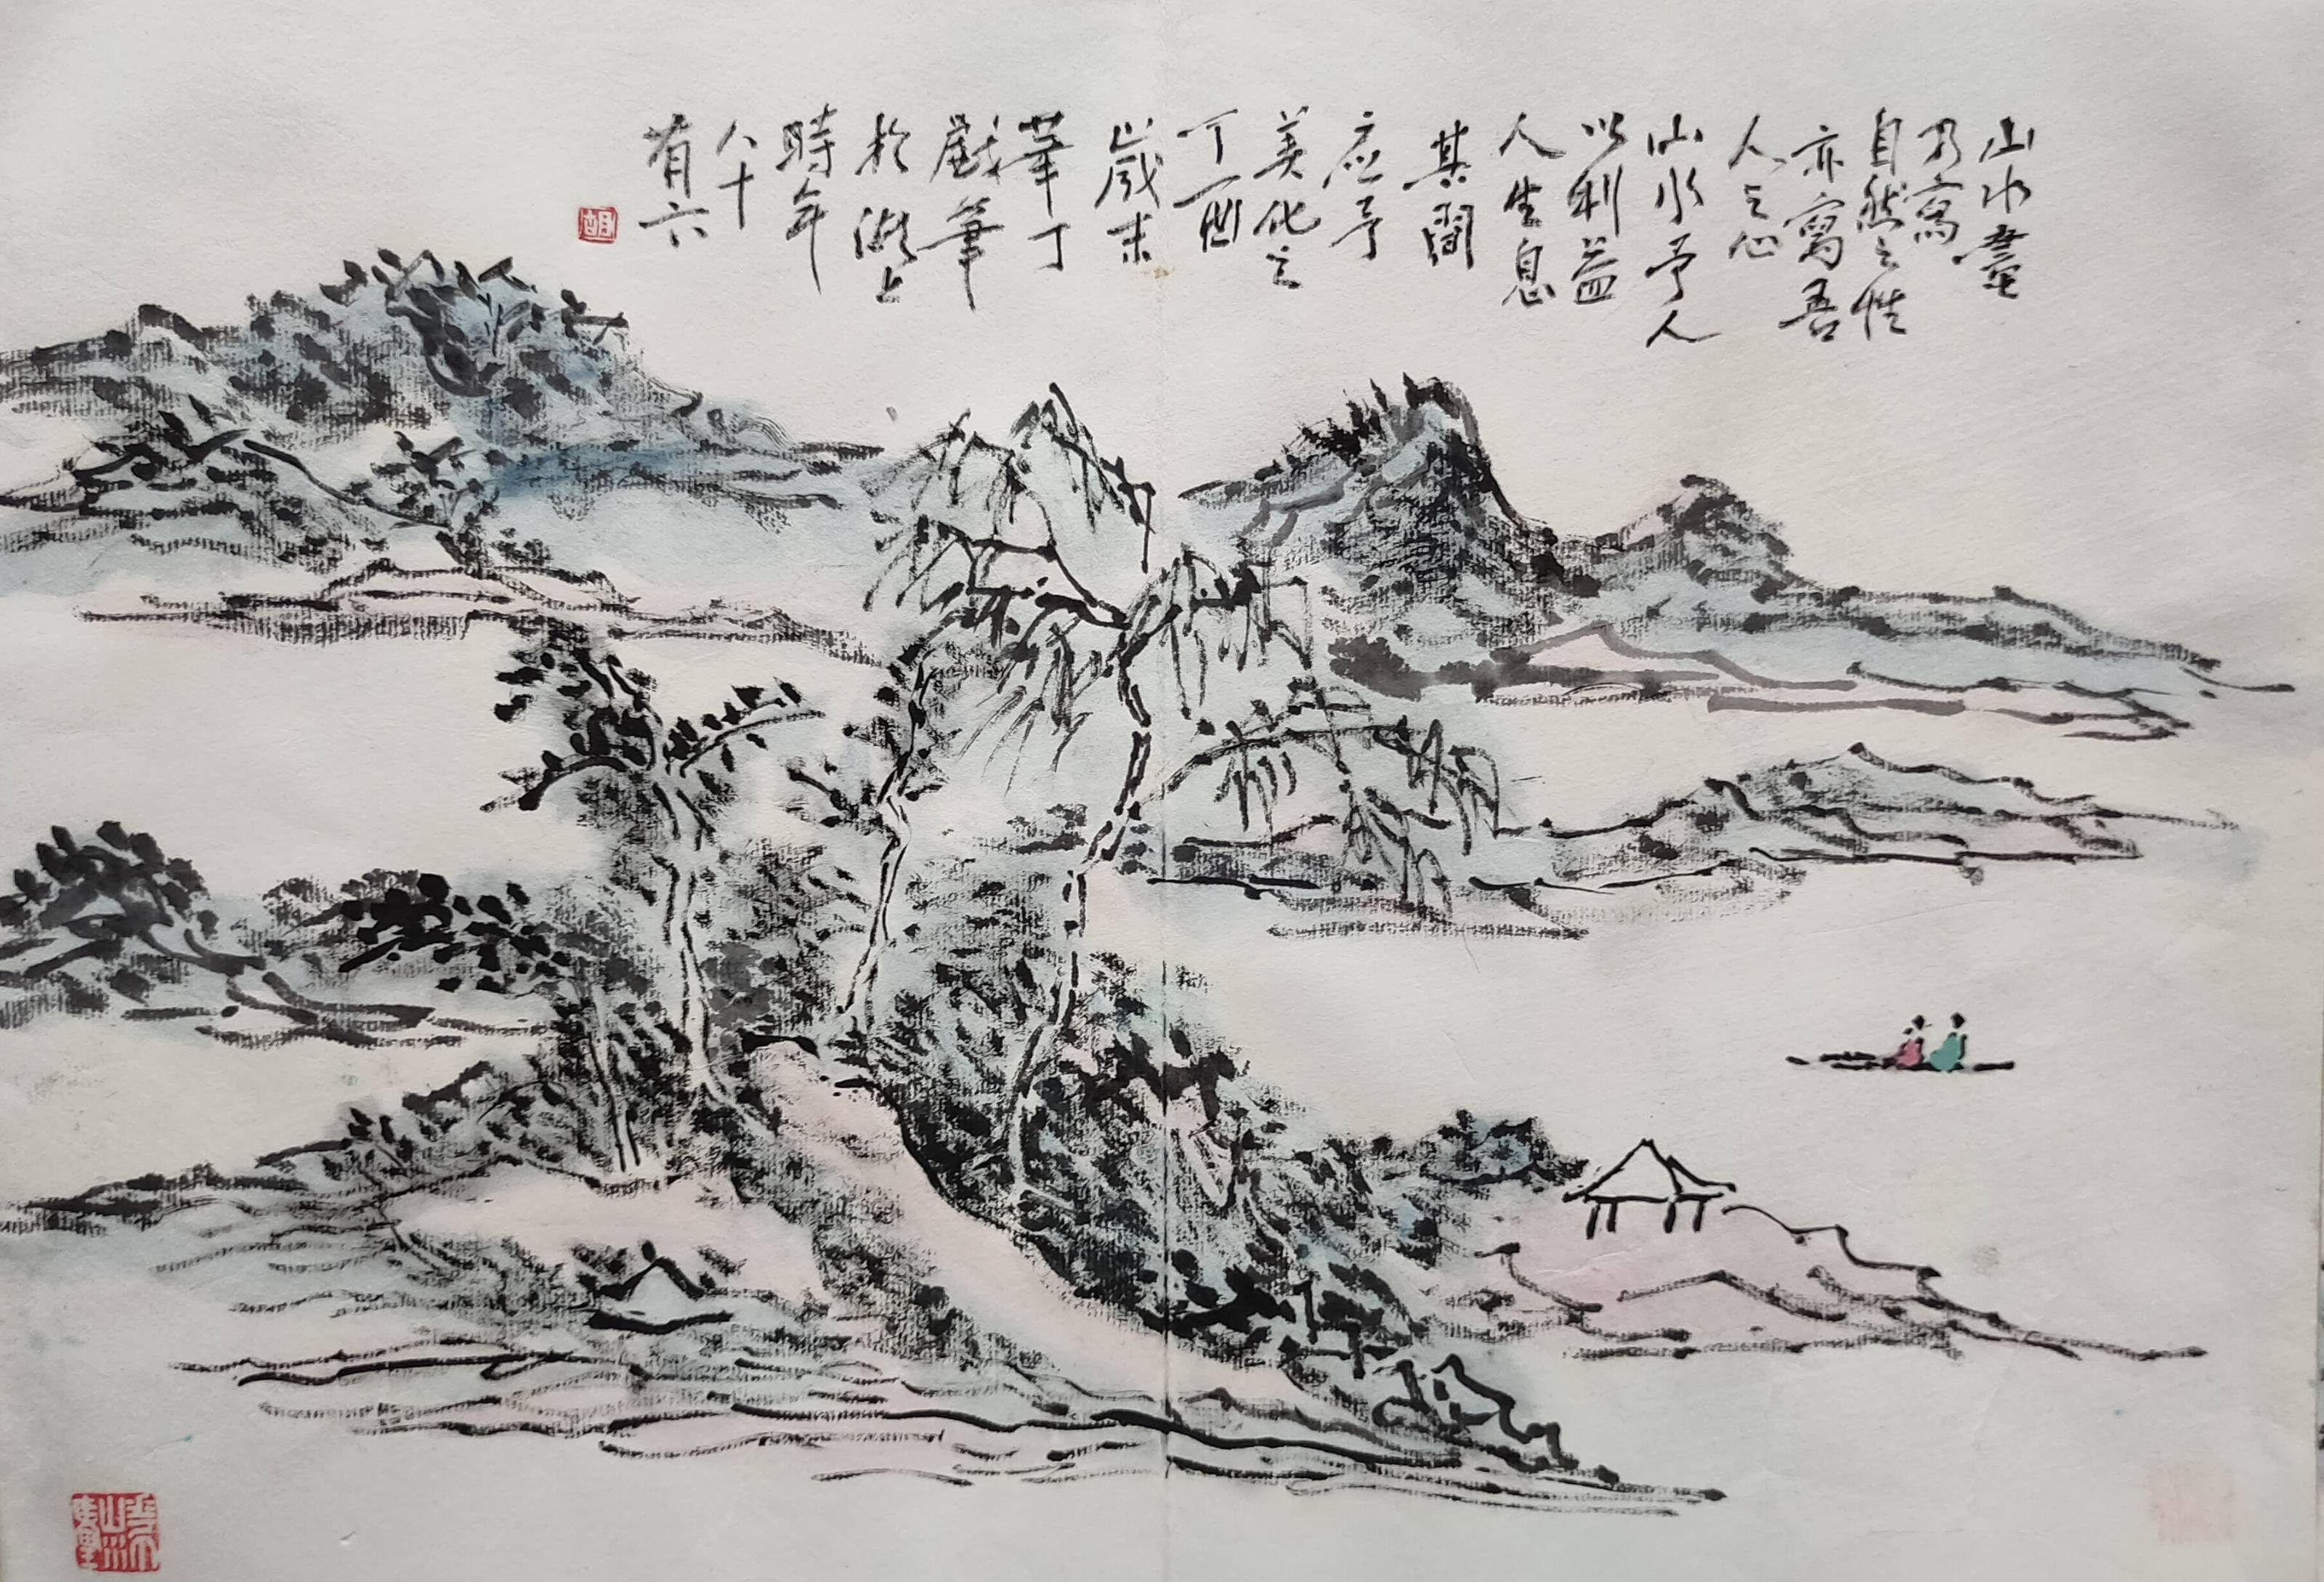 山水畫
乃寫
自然之性
亦寫吾
人之心
山水予人
以利益
人生息
其間
应予
美化之
丁酉
歲末
華丁
戲筆
於湖上
時年
八十
有六
胡